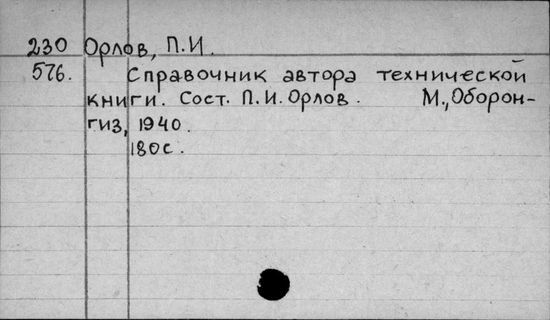 230 Орлов, П.И.
576. Справочник автора технической
книги. Сост. П.И. Орлов. М., Оборон-
гиз, 1940.
180с.